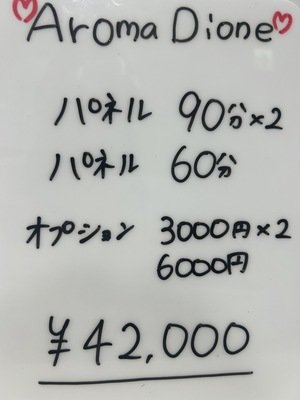 Aroma Dione
パネル 90分×2
パネル 60分
オプション 3000円×2
6000円
¥42,000